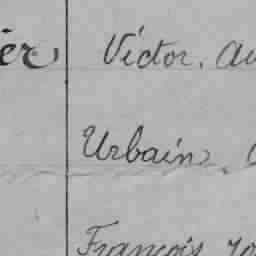 ier Victor. Au
Urbain.
François